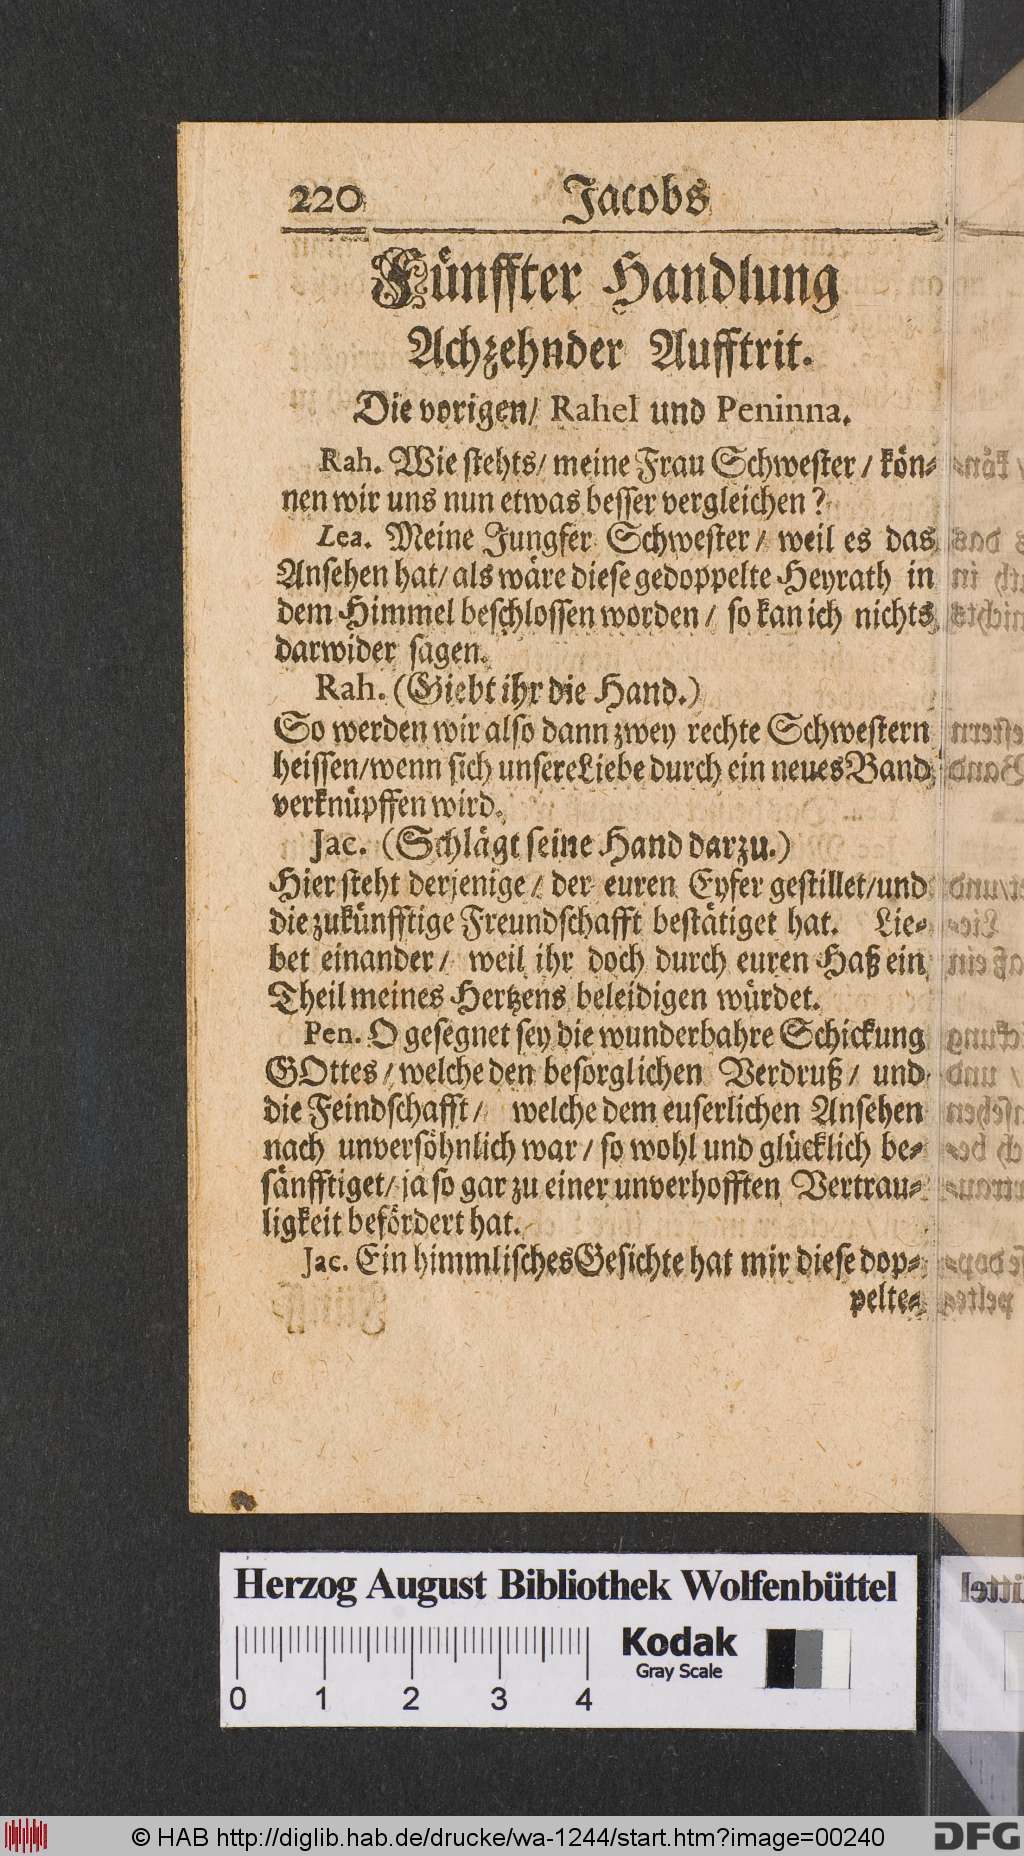 220 Jacobs
Fünffter Handlung
Achzehnder Aufftrit.
Die vorigen/ Rahel und Peninna.
Rah. Wie stehts/ meine Frau Schwester/ kön-
nen wir uns nun etwas besser vergleichen?
Lea. Meine Jungfer Schwester/ weil es das
Ansehen hat/ als wäre diese gedoppelte Heyrath in
dem Himmel beschlossen worden/ so kan ich nichts
darwider sagen.
Rah. (Giebt ihr die Hand.)
So werden wir also dann zwey rechte Schwestern
heissen/ wenn sich unsere Liebe durch ein neues Band
verknüpffen wird.
Jac. (Schlägt seine Hand darzu.)
Hier steht derjenige/ der euren Eyfer gestillet/ und
die zukünfftige Freundschafft bestätiget hat. Lie-
bet einander/ weil ihr doch durch euren Haß ein
Theil meines Hertzens beleidigen würdet.
Pen. O gesegnet sey die wunderbahre Schickung
GOttes/ welche den besorglichen Verdruß/ und
die Feindschafft/ welche dem euserlichen Ansehen
nach unversöhnlich war/ so wohl und glücklich be-
sänfftiget/ ja so gar zu einer unverhofften Vertrau-
ligkeit befördert hat.
Jac. Ein himmlisches Gesichte hat mir diese dop-
pelte-
Herzog August Bibliothek Wolfenbüttel
Kodak
Gray Scale
0 1 2 3 4
© HAB http://diglib.hab.de/drucke/wa-1244/start.htm?image=00240
DFG